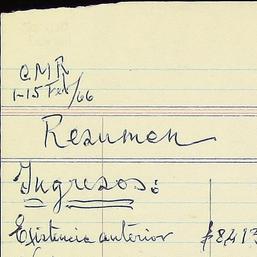 CMR
1-15 Feb/66
Resumen
Ingresos:
Existencia anterior $8,413